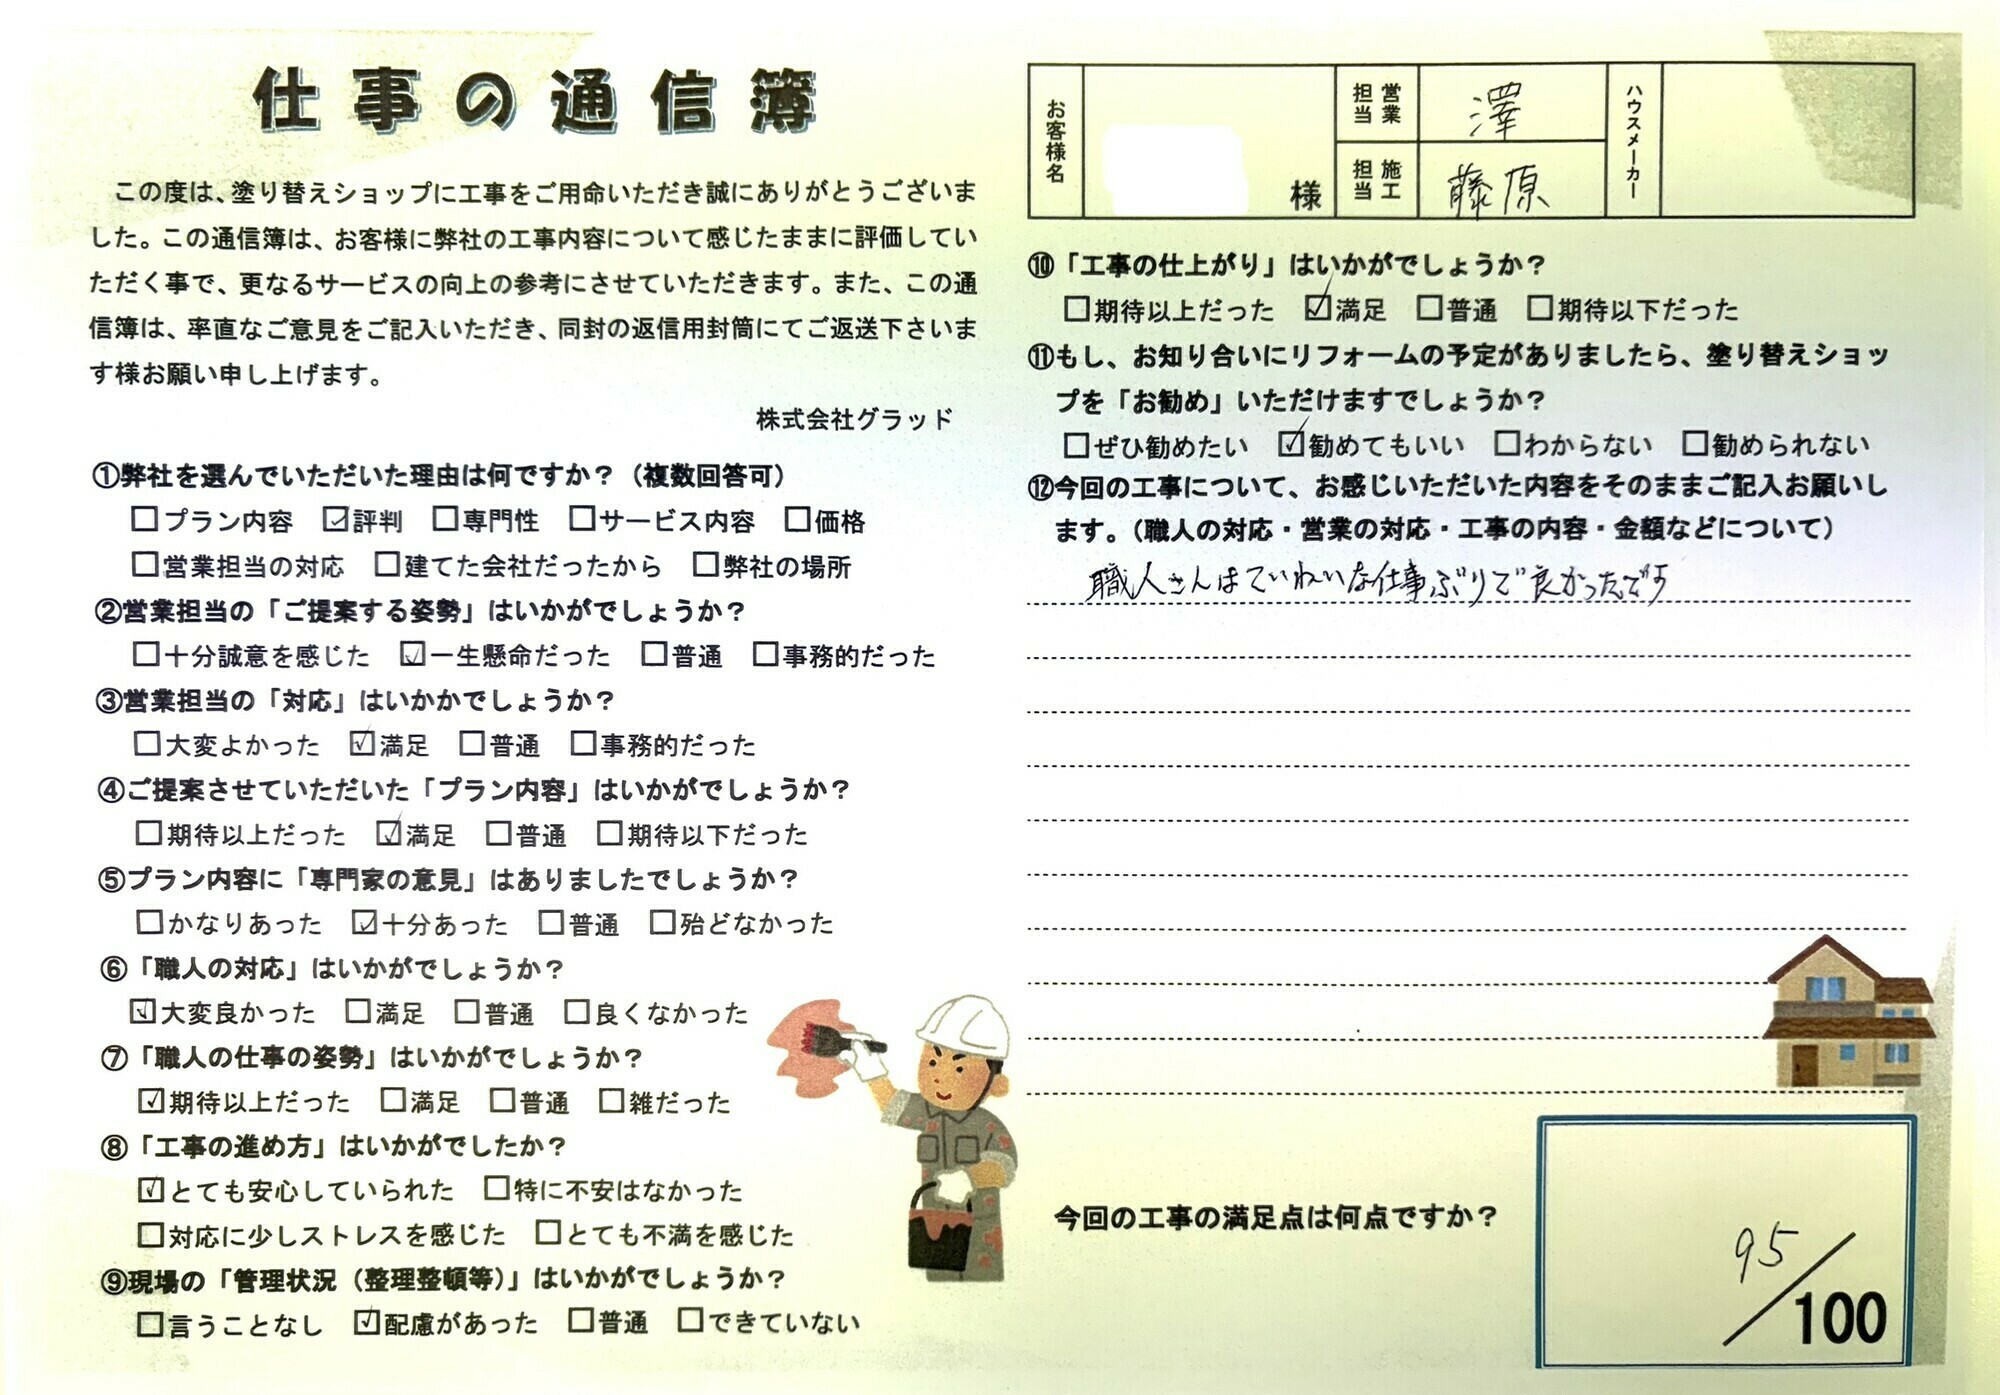 仕事の通信簿
この度は、塗り替えショップに工事をご用命いただき誠にありがとうございま
した。この通信簿は、お客様に弊社の工事内容について感じたままに評価してい
ただく事で、更なるサービスの向上の参考にさせていただきます。また、この通
信簿は、率直なご意見をご記入いただき、同封の返信用封筒にてご返送下さいま
す様お願い申し上げます。
株式会社グラッド
①弊社を選んでいただいた理由は何ですか？（複数回答可）
□プラン内容 ☑評判 □専門性 □サービス内容 □価格
□営業担当の対応 □建てた会社だったから □弊社の場所
②営業担当の「ご提案する姿勢」はいかがでしょうか？
□十分誠意を感じた ☑一生懸命だった □普通 □事務的だった
③営業担当の「対応」はいかかでしょうか？
□大変よかった ☑満足 □普通 □事務的だった
④ご提案させていただいた「プラン内容」はいかがでしょうか？
□期待以上だった ☑満足 □普通 □期待以下だった
⑤プラン内容に「専門家の意見」はありましたでしょうか？
□かなりあった ☑十分あった □普通 □殆どなかった
⑥「職人の対応」はいかがでしょうか？
☑大変良かった □満足 □普通 □良くなかった
⑦「職人の仕事の姿勢」はいかがでしょうか？
☑期待以上だった □満足 □普通 □雑だった
⑧「工事の進め方」はいかがでしたか？
☑とても安心していられた □特に不安はなかった
□対応に少しストレスを感じた □とても不満を感じた
⑨現場の「管理状況（整理整頓等）」はいかがでしょうか？
□言うことなし ☑配慮があった □普通 □できていない
お客様名
様
営業担当
澤
施工担当
藤原
ハウスメーカー
⑩「工事の仕上がり」はいかがでしょうか？
□期待以上だった ☑満足 □普通 □期待以下だった
⑪もし、お知り合いにリフォームの予定がありましたら、塗り替えショッ
プを「お勧め」いただけますでしょうか？
□ぜひ勧めたい ☑勧めてもいい □わからない □勧められない
⑫今回の工事について、お感じいただいた内容をそのままご記入お願いし
ます。（職人の対応・営業の対応・工事の内容・金額などについて）
職人さんはていねいな仕事ぶりで良かったです
今回の工事の満足点は何点ですか？
95/100